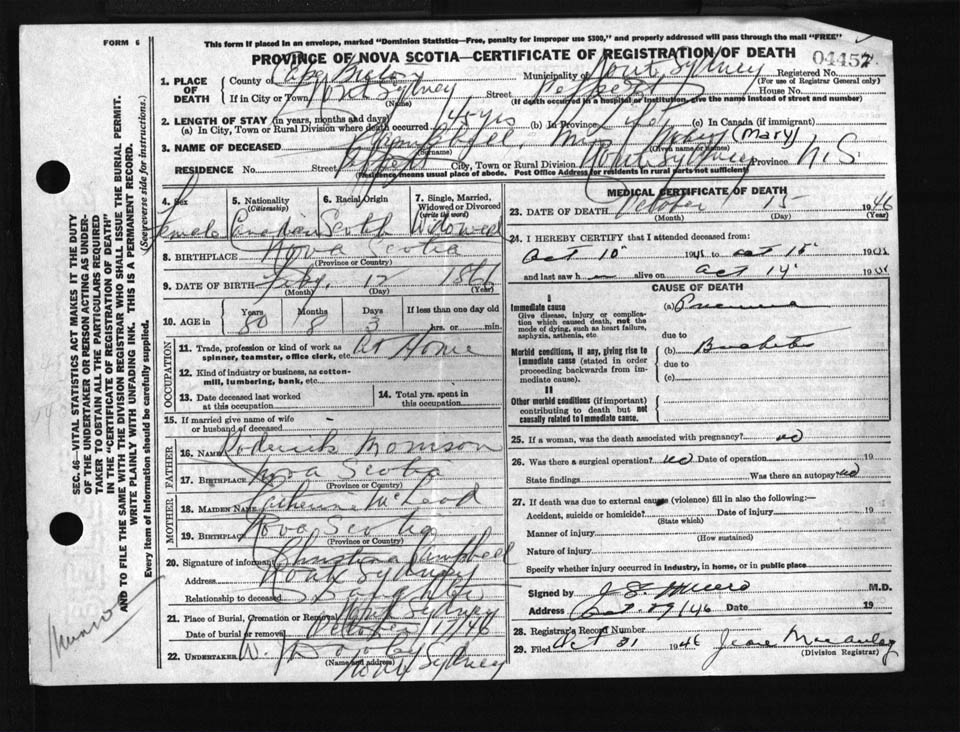 FORM 6
This form if placed in an envelope, marked "Dominion Statistics—Free, penalty for improper use $300," and properly addressed will pass through the mail "FREE"
PROVINCE OF NOVA SCOTIA—CERTIFICATE OF REGISTRATION OF DEATH
04457
1. PLACE OF DEATH County of Cape Breton Municipality of North Sydney Registered No.
(For use of Registrar General only)
If in City or Town North Sydney Street Peppett St House No.
(Name) (If death occurred in a hospital or institution, give the name instead of street and number)
2. LENGTH OF STAY (in years, months and days)
(a) In City, Town or Rural Division where death occurred 45 yrs (b) In Province Life (c) In Canada (if immigrant)
3. NAME OF DECEASED Campbell, Mrs (Mary)
(Surname) (Given name or names)
RESIDENCE No. Street Peppett City, Town or Rural Division North Sydney Province N.S.
(Residence means usual place of abode. Post Office Address for residents in rural parts not sufficient)
4. Sex 5. Nationality (Citizenship) 6. Racial Origin 7. Single, Married, Widowed or Divorced (write the word)
Female Canadian Scotch Widowed
8. BIRTHPLACE Nova Scotia
(Province or Country)
9. DATE OF BIRTH Feby. 12 1866
(Month) (Day) (Year)
10. AGE in Years Months Days If less than one day old
80 8 3 hrs. or min.
OCCUPATION
11. Trade, profession or kind of work as spinner, teamster, office clerk, etc. At Home
12. Kind of industry or business, as cotton-mill, lumbering, bank, etc.
13. Date deceased last worked at this occupation
14. Total yrs. spent in this occupation
15. If married give name of wife or husband of deceased
FATHER
16. NAME Roderick Morrison
17. BIRTHPLACE Nova Scotia
(Province or Country)
MOTHER
18. MAIDEN NAME Catherine McLeod
19. BIRTHPLACE Nova Scotia
(Province or Country)
20. Signature of informant Christina Campbell
Address North Sydney
Relationship to deceased Daughter
21. Place of Burial, Cremation or Removal North Sydney
Date of burial or removal October 17/46
22. UNDERTAKER W. Dooley
(Name and address)
North Sydney
MEDICAL CERTIFICATE OF DEATH
23. DATE OF DEATH October 15 1946
(Month) (Day) (Year)
24. I HEREBY CERTIFY that I attended deceased from:
Oct 10 19 to Oct 15 19
and last saw h alive on Oct 14 19
CAUSE OF DEATH
I
Immediate cause
Give disease, injury or complication which caused death, not the mode of dying, such as heart failure, asphyxia, asthenia, etc.
(a) Pneumonia
due to
Morbid conditions, if any, giving rise to immediate cause (stated in order proceeding backwards from immediate cause).
(b) Bronchitis
due to
(c)
II
Other morbid conditions (if important) contributing to death but not causally related to immediate cause.
25. If a woman, was the death associated with pregnancy? no
26. Was there a surgical operation? no Date of operation 19
State findings Was there an autopsy? no
27. If death was due to external cause (violence) fill in also the following:—
Accident, suicide or homicide? Date of injury 19
(State which)
Manner of injury
(How sustained)
Nature of injury
Specify whether injury occurred in industry, in home, or in public place
Signed by M.D.
Address Oct. 29/46 Date 19
28. Registrar's Record Number
29. Filed Oct 31 1946
(Division Registrar)
SEC. 46—VITAL STATISTICS ACT MAKES IT THE DUTY
OF THE UNDERTAKER OR PERSON ACTING AS UNDER-
TAKER TO OBTAIN ALL THE PARTICULARS REQUIRED
IN THE "CERTIFICATE OF REGISTRATION OF DEATH"
AND TO FILE THE SAME WITH THE DIVISION REGISTRAR WHO SHALL ISSUE THE BURIAL PERMIT.
WRITE PLAINLY WITH UNFADING INK. THIS IS A PERMANENT RECORD.
Every item of information should be carefully supplied. (See reverse side for instructions.)
Munro